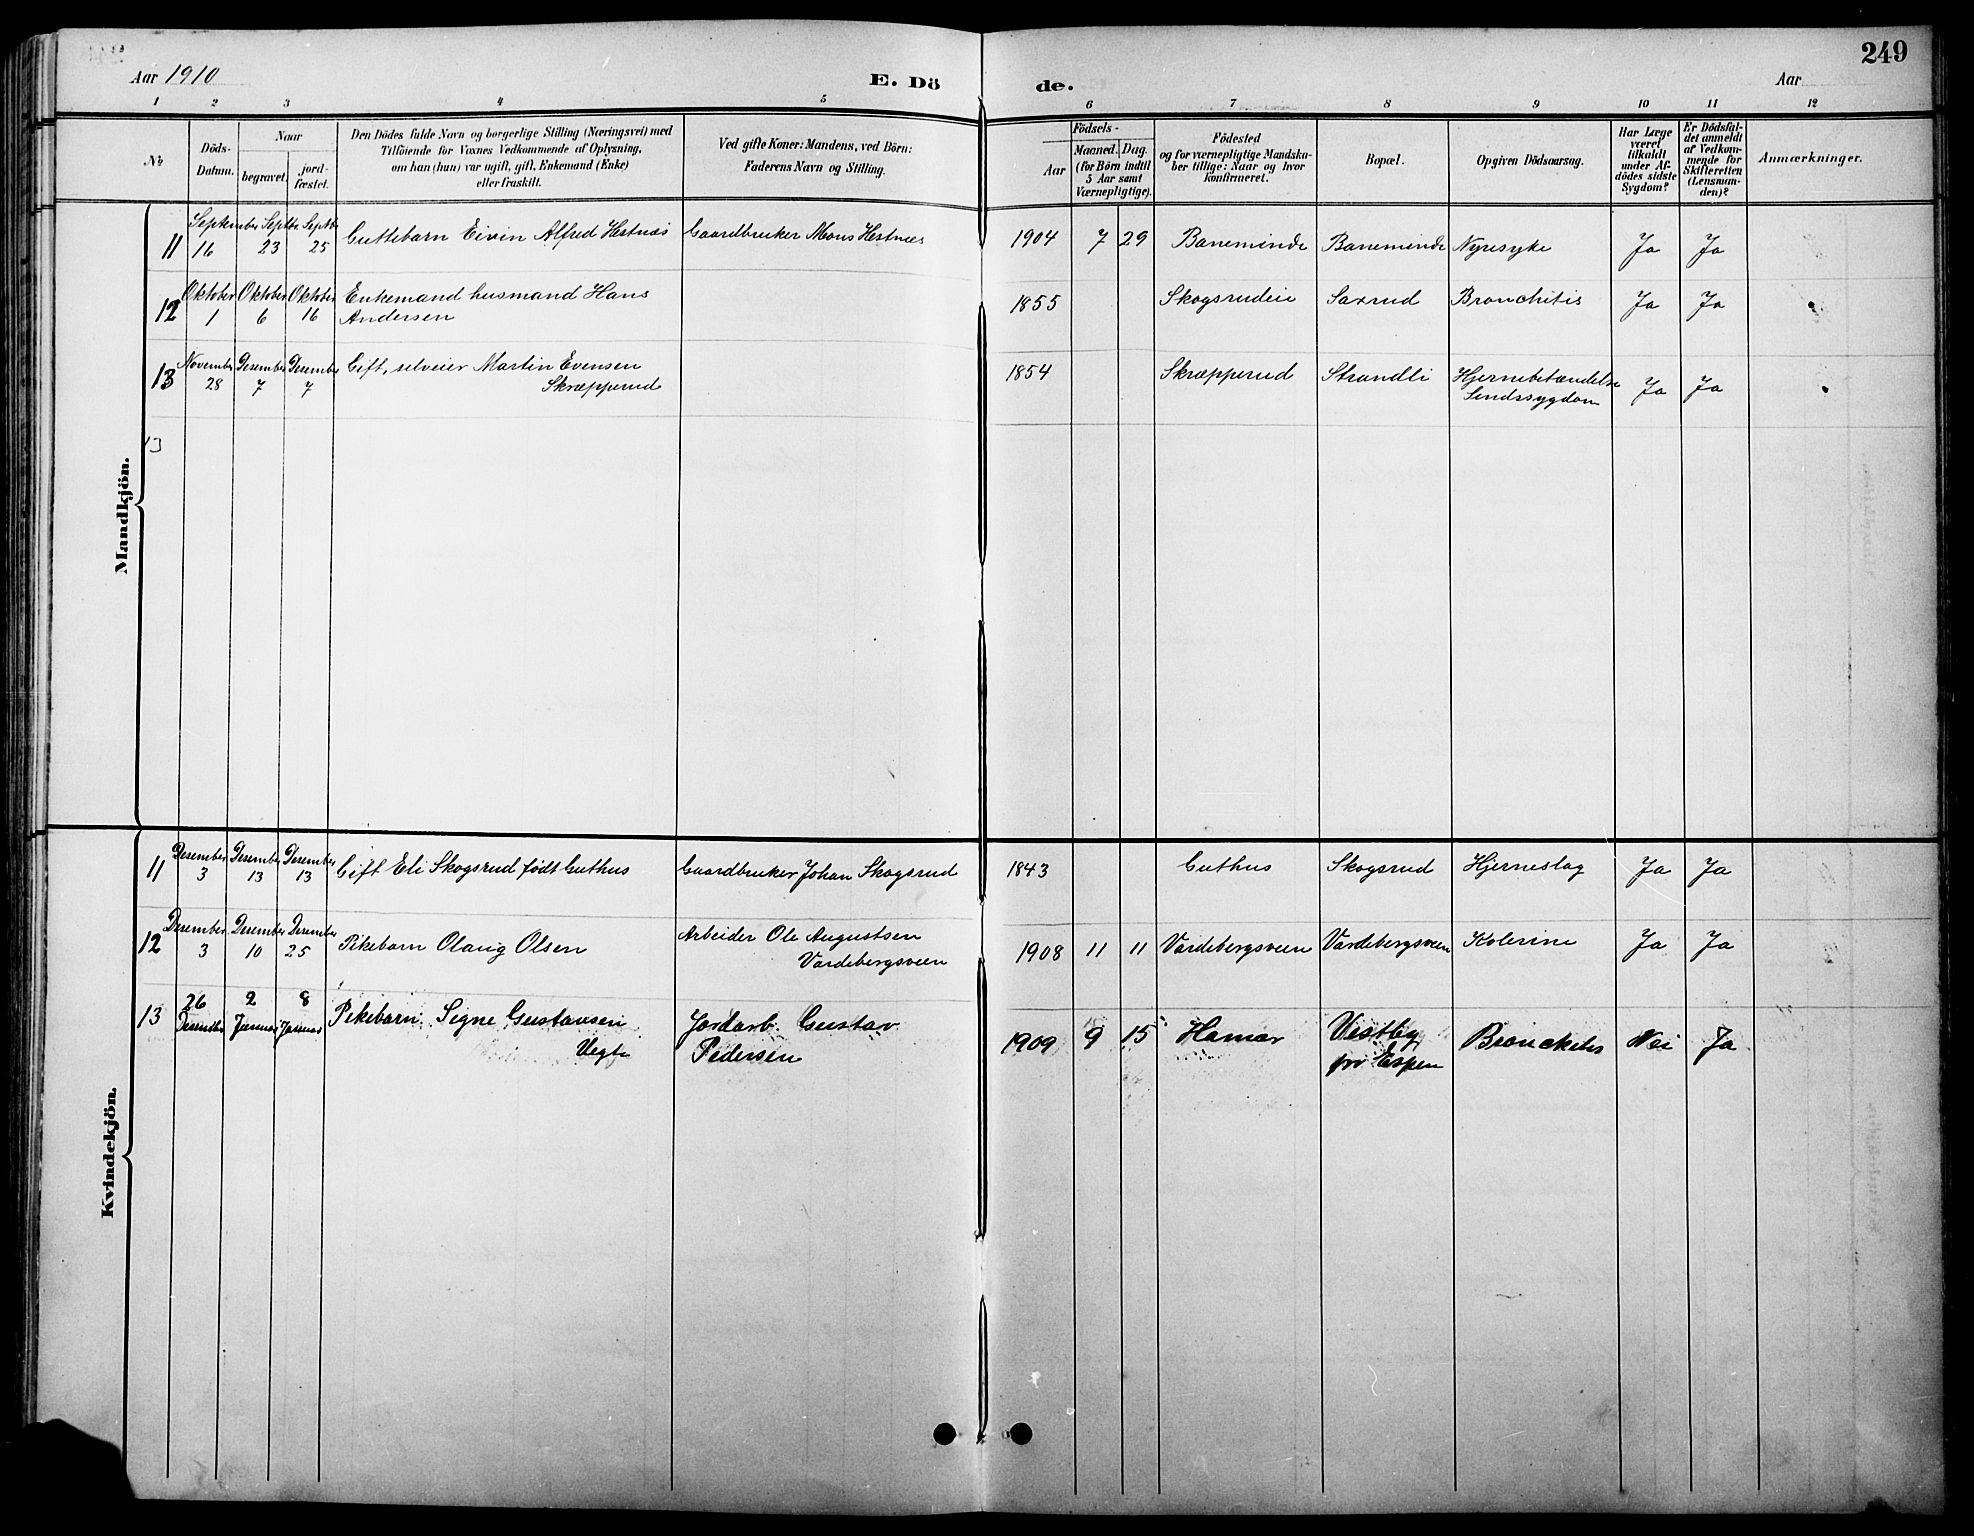 249
Aar 1910
E. Dö
de.
Aar
1 2 3 4 5 6 7 8 9 10 11 12
No
Döds-
Datum.
Naar
begravet.
jord-
fæstet.
Den Dödes fulde Navn og borgerlige Stilling (Næringsvei) med
Tilföiende for Voxnes Vedkommende af Oplysning,
om han (hun) var ugift, gift, Enkemand (Enke)
eller fraskilt.
Ved gifte Koner: Mandens, ved Börn:
Faderens Navn og Stilling.
Födsels-
Aar
Maaned. Dag.
(for Börn indtil
5 Aar samt
Værnepligtige).
Födested
og for værnepligtige Mandska-
ber tillige: Naar og hvor
konfirmeret.
Bopæl.
Opgiven Dödsaarsag.
Har Læge
været
tilkaldt
under Af-
dödes sidste
Sygdom?
Er Dödsfal-
det anmeldt
af Vedkom-
mende for
Skifteretten
(Lensman-
den)?
Anmærkninger.
Mandkjön.
11 September 16 Septbr 23 Septbr 25 Guttebarn Eivin Alfred Hestnæs Gaardbruker Mons Hestnæs 1904 7 29 Baneminde Baneminde Nyresyke Ja Ja
12 Oktober 1 Oktober 6 Oktober 16 Enkemand husmand Hans
Andersen 1855 Skogsrudeie Saxrud Bronchitis Ja Ja
13 November 28 Desember 7 Desember 7 Gift, selveier Martin Evensen
Skræpperud 1854 Skræpperud Strandli Hjernebetændelse
Sindssygdom Ja Ja
13
Kvindekjön.
11 Desember 3 Desember 13 Desember 13 Gift Eli Skogsrud født Guthus Gaardbruker Johan Skogsrud 1843 Guthus Skogsrud Hjerneslag Ja Ja
12 Desember 3 Desember 10 Desember 25 Pikebarn Olaug Olsen Arbeider Ole Augustsen
Vardebergsveen 1908 11 11 Vardebergsveen Vardebergsveen Kolerine Ja Ja
13 26 Desember 2 Januar 8 Januar Pikebarn Signe Gustavsen
Jordarb. Gustav
Pedersen 1909 9 15 Hamar Vestby
Espen Bronchitis Nei Ja